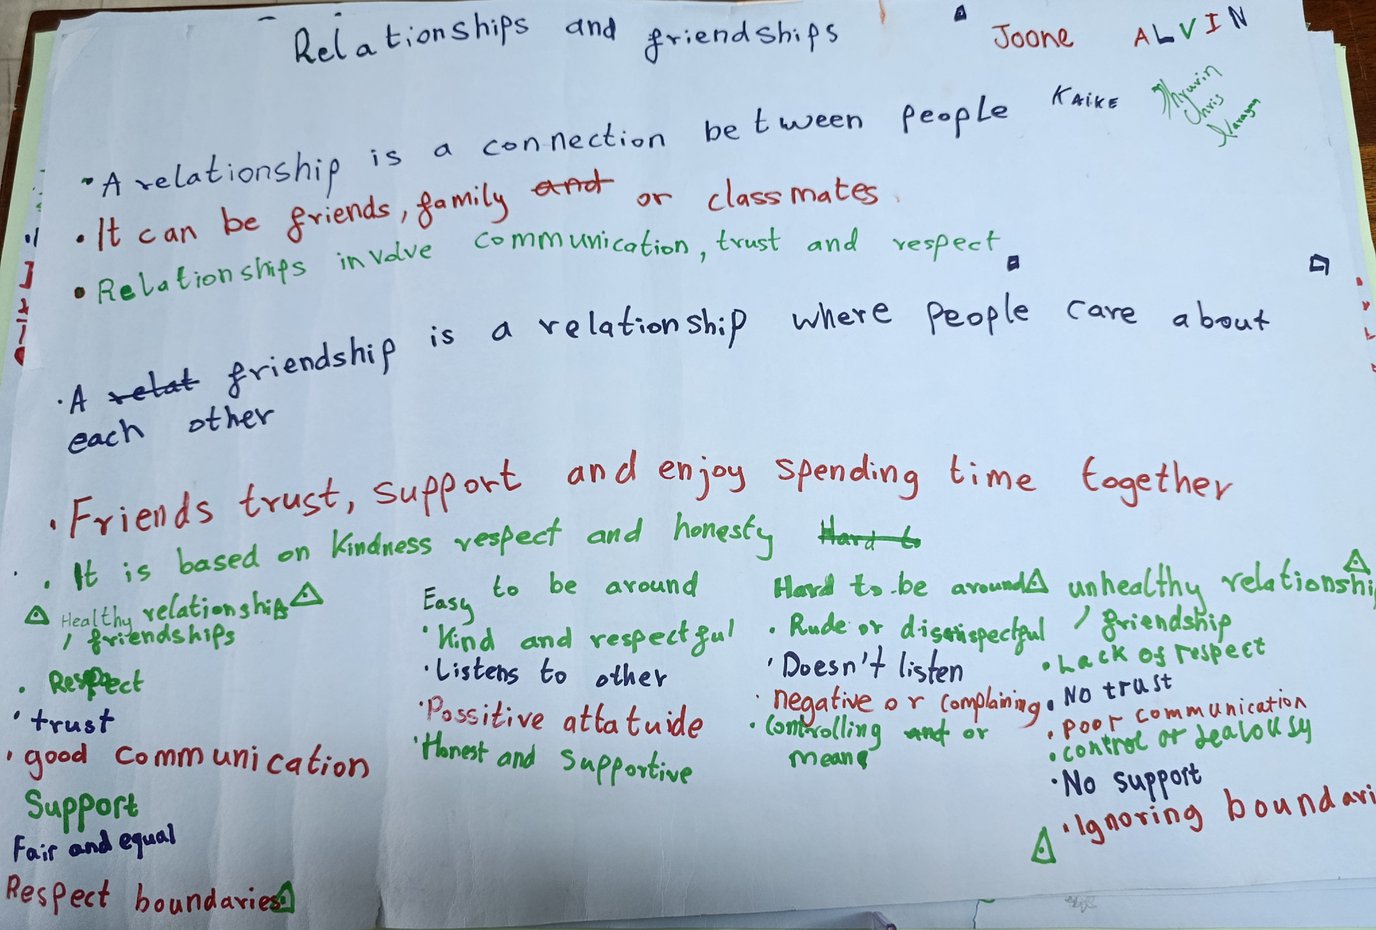 Relationships and friendships
Joone
ALVIN
KAiKE
Thyurin
Chris
Narayan
• A relationship is a connection between people
• It can be friends, family and or classmates.
• Relationships involve communication, trust and respect
• A relat friendship is a relationship where people care about
each other
• Friends trust, support and enjoy spending time together
• It is based on kindness respect and honesty Hard to
Healthy relationships
/ friendships
• Respect
• trust
• good communication
Support
Fair and equal
Respect boundaries
Easy to be around
• Kind and respectful
• Listens to other
• Possitive attatuide
• Honest and Supportive
Hard to be around
• Rude or disrispectful
• Doesn't listen
• negative or complaining
• Controlling and or
mean
unhealthy relationshi
/ friendship
• Lack of respect
• No trust
• poor communication
• control or Jealousy
• No support
• Ignoring boundari